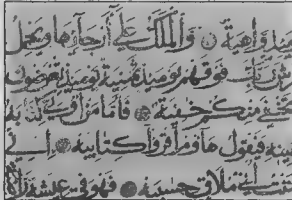 يومئذ واهية والملك على أرجائها ويحمل
عرش ربك فوقهم يومئذ ثمنية يومئذ تعرضون
تخفى منكم خافية فأما من أوتي كتابه
بيمينه فيقول هاؤم اقرؤا كتابيه إني
ظننت أني ملاق حسابيه فهو في عيشة راضية